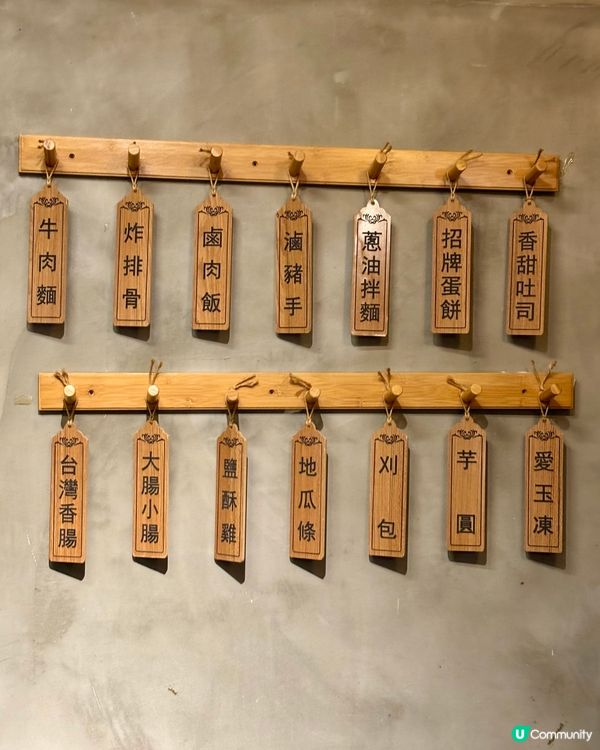 牛肉麵
炸排骨
鹵肉飯
滷豬手
蔥油拌麵
招牌蛋餅
香甜吐司
台灣香腸
大腸小腸
鹽酥雞
地瓜條
刈包
芋圓
愛玉凍
U Community